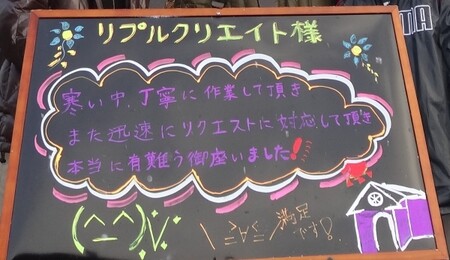 リプルクリエイト様
寒い中、丁寧に作業して頂き
また迅速にリクエストに対応して頂き
本当に有難う御座いました!!
(^-^)V
満足です!